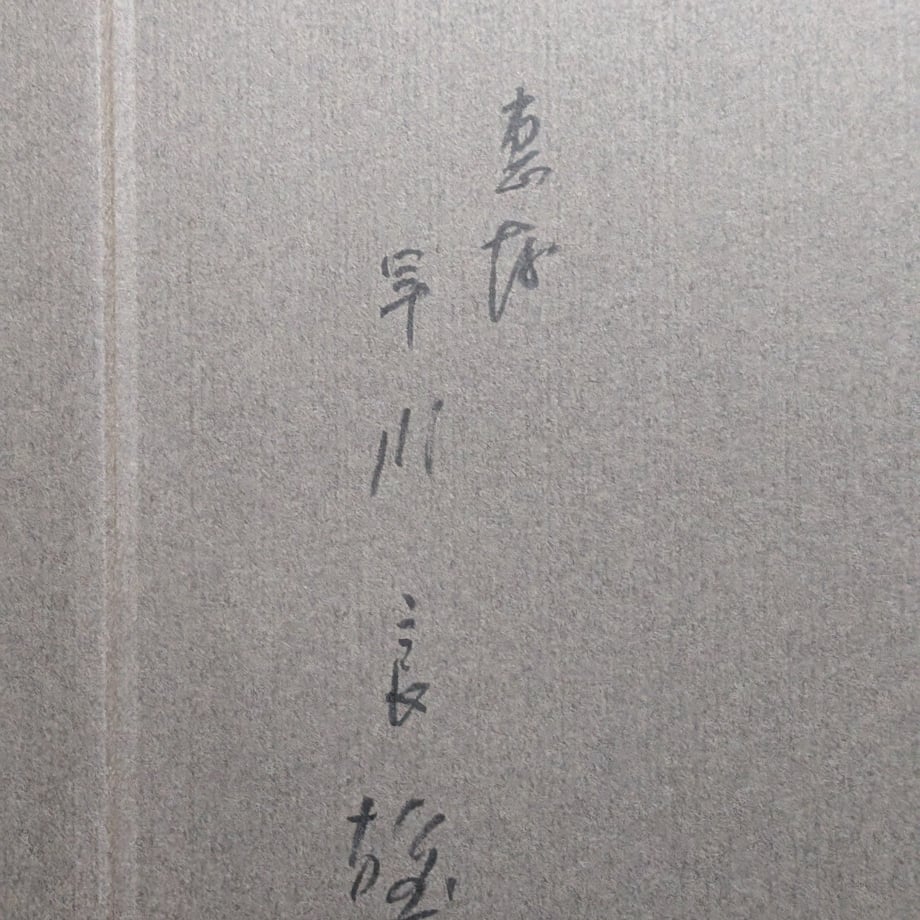 恵存
早川良雄